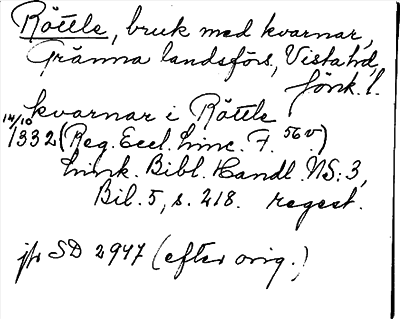 Röttle, bruk med kvarnar,
Gränna landsförs., Vista hd,
Jönk. l.
kvarnar i Röttle
14/10 1332 (Reg. Eccl. Linc. F. 56 v)
Link. Bibl. Handl. NS: 3,
Bil. 5, s. 218. regest.
jfr SD 2947 (efter orig.)